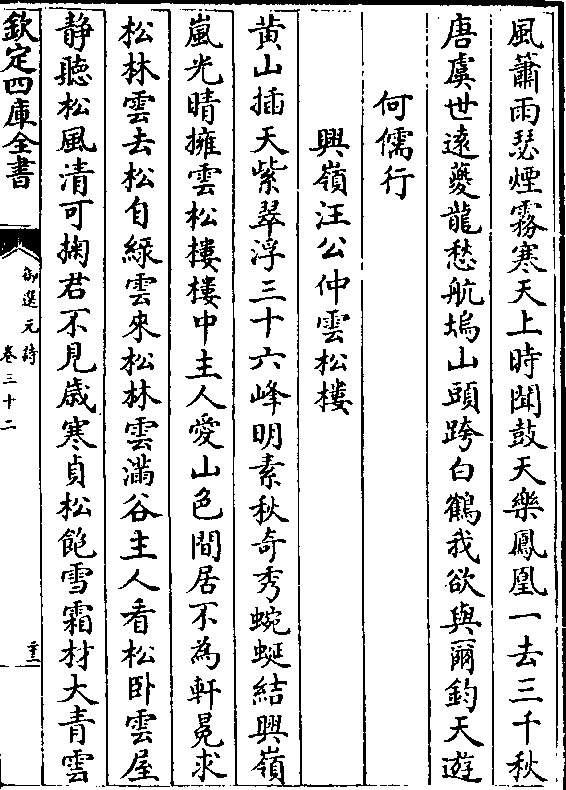 風蕭雨瑟煙霧寒天上時聞鼓天樂鳳凰一去三千秋
唐虞世逺夔龍愁航塢山頭跨白鶴我欲與爾鈞天遊
何儒行
興嶺汪公仲雲松樓
黄山插天紫翠浮三十六峰明素秋奇秀蜿蜒結興嶺
嵐光晴擁雲松樓樓中主人愛山色間居不為軒冕求
松林雲去松自緑雲來松林雲滿谷主人看松卧雲屋
静聽松風清可掬君不見嵗寒貞松飽雪霜材大青雲
欽定四庫全書
御選元詩
卷三十二